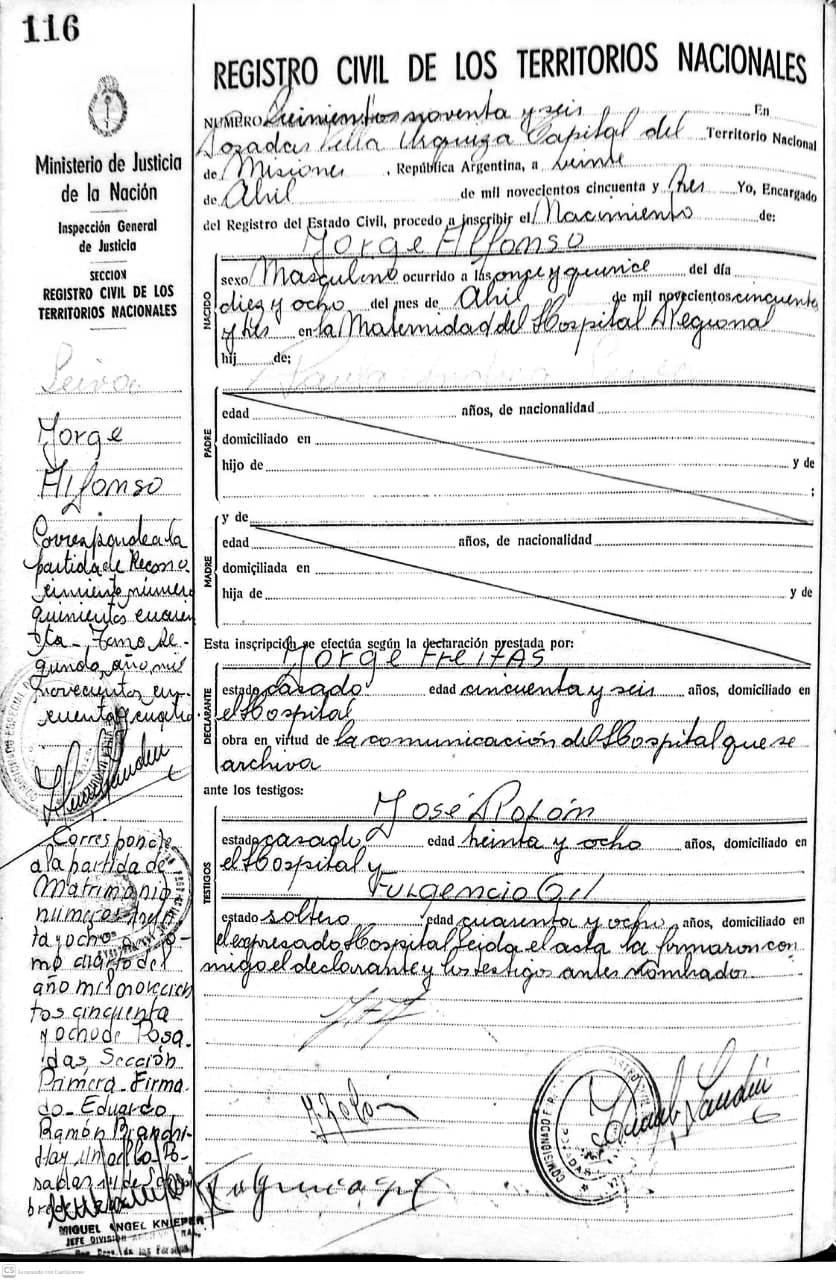 116
REGISTRO CIVIL DE LOS TERRITORIOS NACIONALES
Ministerio de Justicia
de la Nación
Inspección General
de Justicia
SECCION
REGISTRO CIVIL DE LOS
TERRITORIOS NACIONALES
Leiva
Jorge
Alfonso
Corresponde a la
partida de Recono
cimiento número
quinientos cuaren
ta - Tomo Se-
gundo, año mil
novecientos cin
cuenta y cuatro.
Corresponde
a la partida de
Matrimonio
número trein
ta y ocho To-
mo cuarto del
año mil novecien
tos cincuenta
y ocho de Posa-
das Sección
Primera - Firma
do - Eduardo
Ramón
Hay un sello Po-
sadas
bre de
MIGUEL ANGEL KNIEPER
JEFE DIVISION
NUMERO Quinientos noventa y seis En
Posadas Villa Urquiza Capital del Territorio Nacional
de Misiones, República Argentina, a veinte
de Abril de mil novecientos cincuenta y tres Yo, Encargado
del Registro del Estado Civil, procedo a inscribir el Nacimiento de:
Jorge Alfonso
NACIDO
sexo Masculino ocurrido a las once y quince del día
diez y ocho del mes de Abril de mil novecientos cincuenta
y tres en la Maternidad del Hospital Regional
hij de;
PADRE
edad años, de nacionalidad
domiciliado en
hijo de y de
;
y de
MADRE
edad años, de nacionalidad
domiciliada en
hija de y de
Esta inscripción se efectúa según la declaración prestada por:
Jorge Freitas
DECLARANTE
estado casado edad cincuenta y seis años, domiciliado en
el Hospital
obra en virtud de la comunicación del Hospital que se
archiva
ante los testigos:
José Rolón
TESTIGOS
estado casado edad treinta y ocho años, domiciliado en
el Hospital y
Fulgencio Gil
estado soltero edad cuarenta y ocho años, domiciliado en
el expresado Hospital Leida el acta la firmaron con
migo el declarante y los testigos antes nombrados
J. Rolón
CS Escaneado con CamScanner